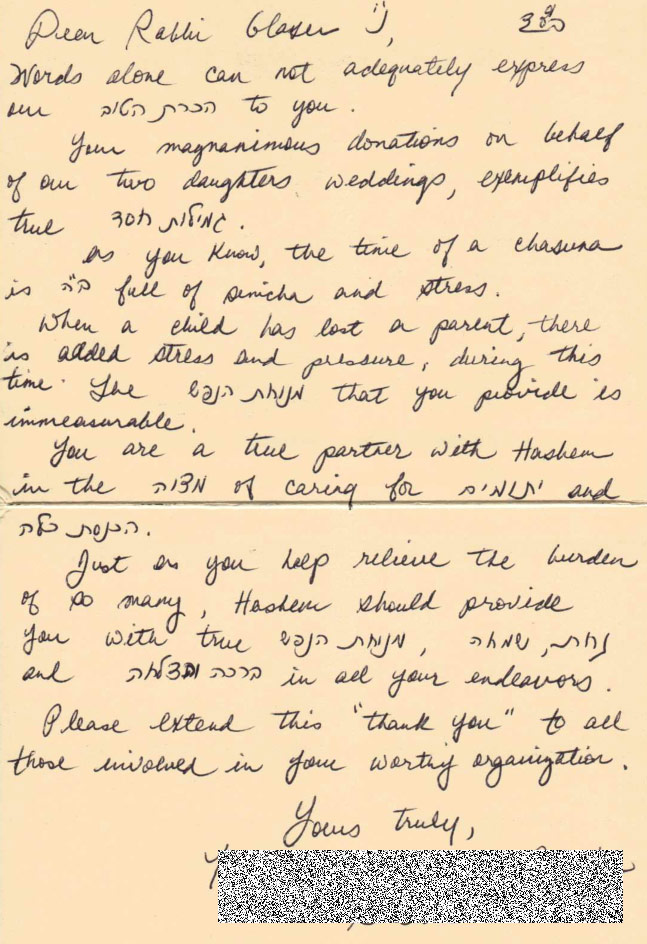 בס"ד
Dear Rabbi Glaser נ"י,
Words alone can not adequately express
our הכרת הטוב to you.
Your magnanimous donations on behalf
of our two daughters weddings, exemplifies
true גמילות חסד.
As you know, the time of a chasuna
is ב"ה full of simcha and stress.
When a child has lost a parent, there
is added stress and pressure, during this
time. The מנוחת הנפש that you provide is
immeasurable.
You are a true partner with Hashem
in the מצוה of caring for יתומים and
הכנסת כלה.
Just as you help relieve the burden
of so many, Hashem should provide
you with true נחת, שמחה, מנוחת הנפש
and ברכה והצלחה in all your endeavors.
Please extend this "thank you" to all
those involved in your worthy organization.
Yours truly,